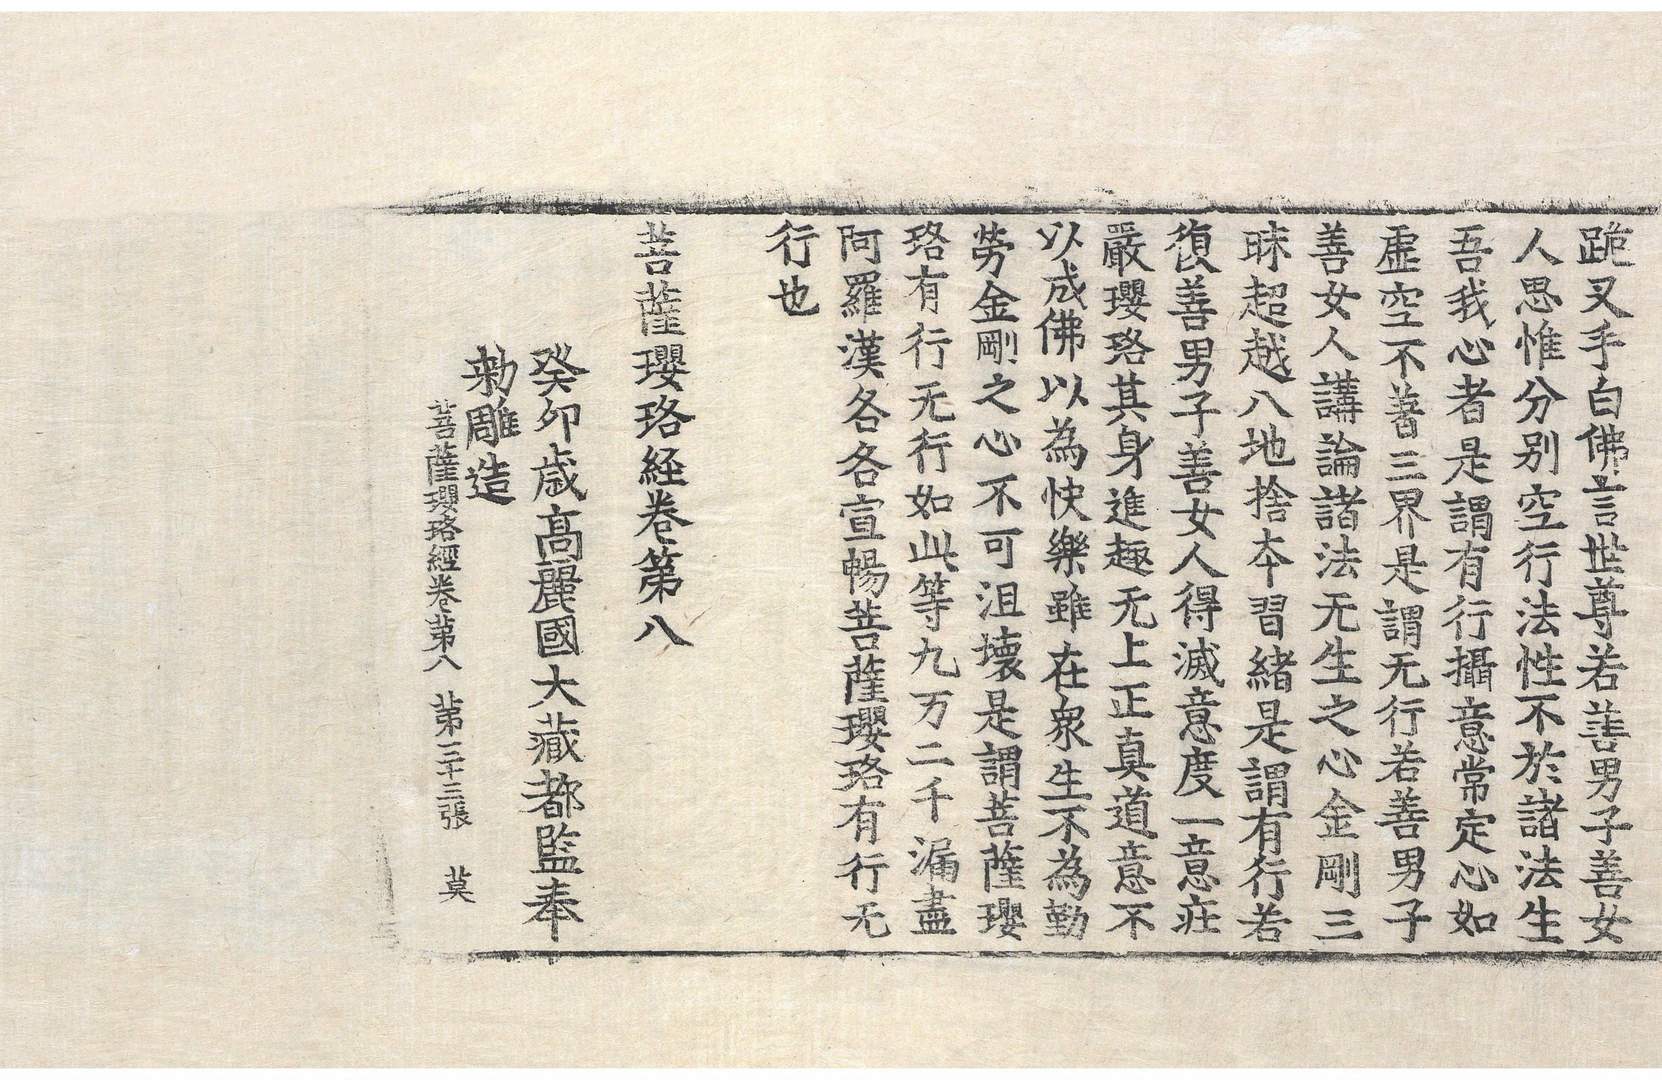 跪叉手白佛言世尊若善男子善女
人思惟分别空行法性不於諸法生
吾我心者是謂有行攝意常定心如
虛空不著三界是謂无行若善男子
善女人講論諸法无生之心金剛三
昧超越八地捨本習緒是謂有行若
復善男子善女人得滅意度一意莊
嚴瓔珞其身進趣无上正真道意不
以成佛以為快樂雖在衆生不為勤
勞金剛之心不可沮壞是謂菩薩瓔
珞有行无行如此等九万二千漏盡
阿羅漢各各宣暢菩薩瓔珞有行无
行也
菩薩瓔珞経卷第八
癸卯歲高麗國大藏都監奉
勅雕造
菩薩瓔珞經卷第八 第三十三張 莫